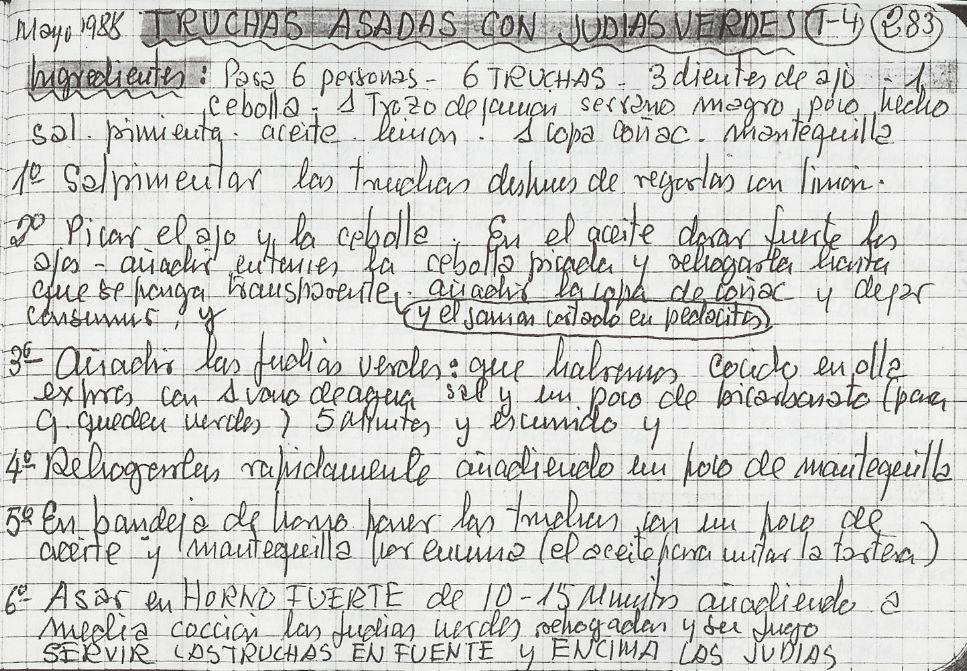 Mayo 1988 TRUCHAS ASADAS CON JUDIAS VERDES T-4 283
Ingredientes: Para 6 personas - 6 TRUCHAS - 3 dientes de ajo - 1
cebolla - 1 Trozo de jamon serrano magro, poco hecho
sal - pimienta - aceite - limon - 1 copa coñac - mantequilla
1º Salpimentar las truchas despues de regarlas con limon.
2º Picar el ajo y la cebolla. En el aceite dorar fuerte los
ajos - añadir entonces la cebolla picada y rehogarla hasta
que se ponga transparente, añadir la copa de coñac y dejar
consumir, y y el jamon cortado en pedacitos
3º- Añadir las judias verdes: que habremos cocido en olla
expres con 1 vaso de agua sal y un poco de bicarbonato (para
q. queden verdes) 5 Minutos y escurrido y
4º- Rehogarlas rapidamente añadiendo un poco de mantequilla
5º En bandeja de horno poner las truchas con un poco de
aceite y mantequilla por encima (el aceite para untar la tartera)
6º- Asar en HORNO FUERTE de 10-15 Minutos añadiendo a
media coccion las judias verdes rehogadas y su jugo
SERVIR LAS TRUCHAS EN FUENTE y ENCIMA LAS JUDIAS